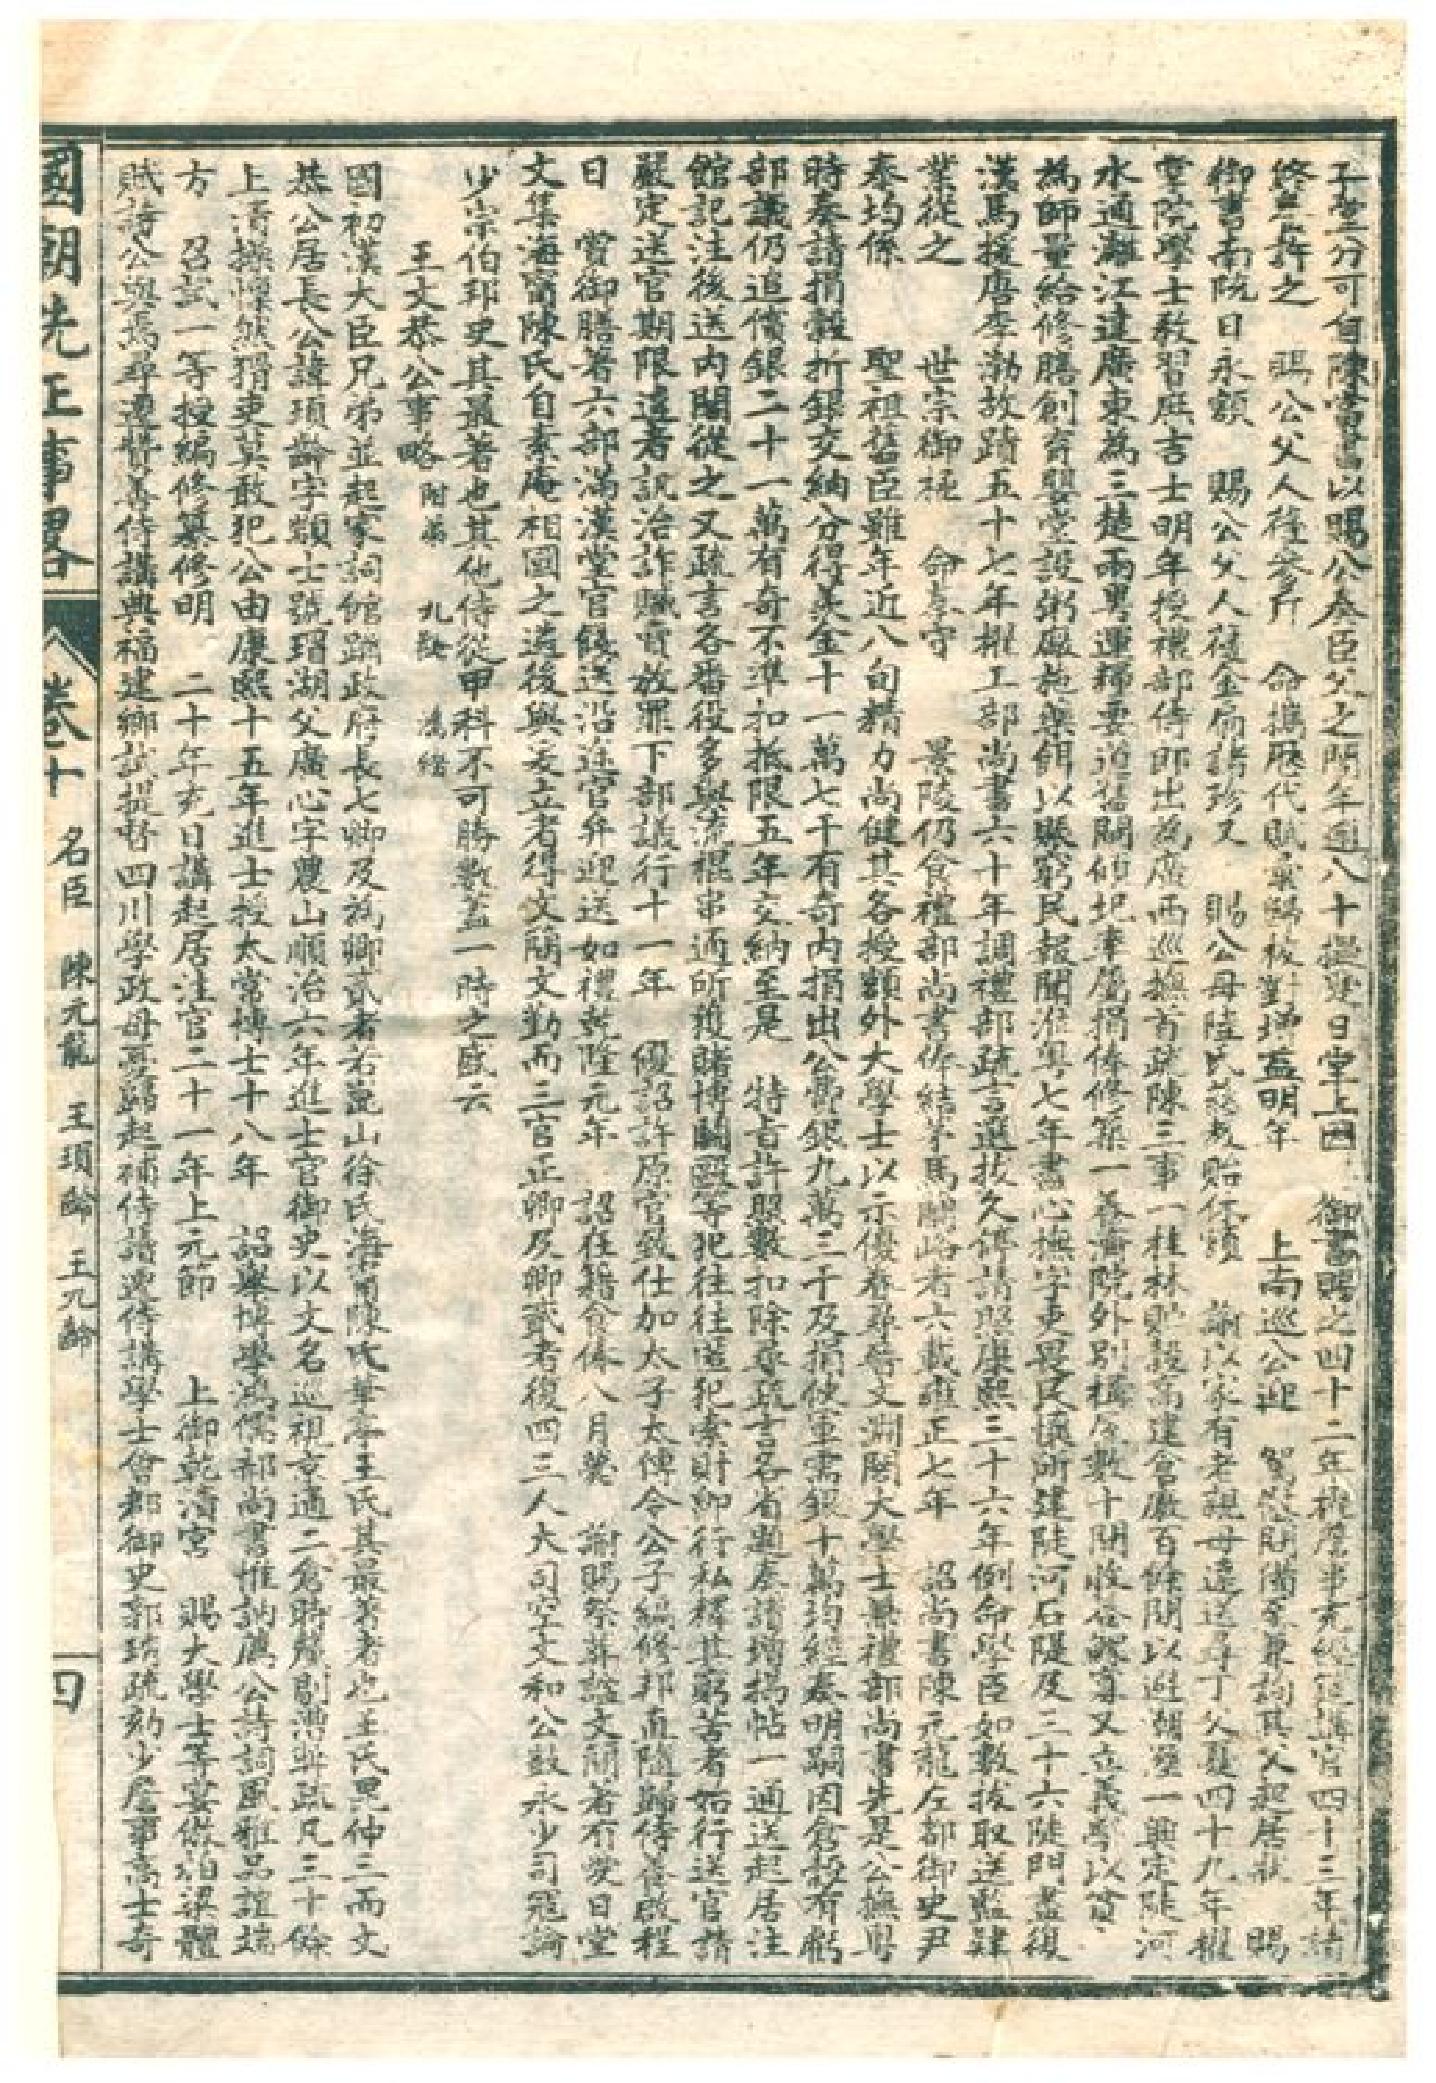 子堂分可自陳當書以賜公奏臣父之闓年逾八十擬愛日堂上因　御書賜之四十二年擢詹事充經筵講官四十三年請
終養許之　賜公父人葠參斤　命攜歷代賦彙歸校對增益明年　上南巡公迎　駕淮間備承兼詢其父起居狀　賜
御書南陔日永額　賜公父人葠金扇諸珍又　賜公母陸氏慈教貽休額　諭以家有老親母遠送尋丁父憂四十九年擢
掌院學士教習庶吉士明年授禮部侍郎出為廣西巡撫首疏陳三事一桂林貯穀高建倉廒百餘間以避潮溼一興定陡河
水通灕江達廣東為三楚兩粵運糴要道舊閘傾圮率屬捐俸修築一養濟院外別構屋數十間收養鰥寡又立義學以資
為師量給修膳創育嬰堂設粥廠施藥餌以賑窮民報聞涖粵七年盡心撫字吏畏民懷所建陡河石隄及三十六陡門盡復
漢馬援唐李渤故蹟五十七年擢工部尚書六十年調禮部疏言選拔久停請照康熙三十六年例命學臣如數拔取送監肄
業從之　世宗御極　命奉守　景陵仍食禮部尚書俸結茅馬蘭峪者六載雍正七年　詔尚書陳元龍左都御史尹
泰均係　聖祖舊臣雖年近八旬精力尚健其各授額外大學士以示優眷尋晉文淵閣大學士兼禮部尚書先是公撫粵
時奏請捐穀折銀交納分得羨金十一萬七千有奇內捐出公費銀九萬三千及捐使軍需銀十萬均經奏明嗣因倉穀有虧
部議仍追償銀二十一萬有奇不準扣抵限五年交納至是　特旨許照數扣除尋疏言各省題奏請增揭帖一通送起居注
館記注後送內閣從之又疏言各番役多與流棍串通所獲賭博鬬毆等犯往往匿犯索財卽行私釋其窮苦者始行送官請
嚴定送官期限違者訊治詐贓賣放罪下部議行十一年　優詔許原官致仕加太子太傅令公子編修邦直隨歸侍養啟程
日　賞御膳著六部滿漢堂官餞送沿途官弁迎送如禮乾隆元年　詔在籍食俸八月薨　諭賜祭葬諡文簡著有愛日堂
文集海甯陳氏自素庵相國之遴後與妾立者得文簡文勤而三官正卿及卿貳者復四三人大司空文和公敱永少司寇論
少宗伯邦史其最著也其他侍從甲科不可勝數蓋一時之盛云
王文恭公事略 附弟　九齡　鴻緒
國初漢大臣兄弟並起家詞館躋政府長七卿及為卿貳者若崑山徐氏海甯陳氏華亭王氏其最著者也王氏昆仲三而文
恭公居長公諱頊齡字顓士號瑁湖父廣心字農山順治六年進士官御史以文名巡視京通二倉時釐剔漕弊疏凡三十餘
上清操懍然猾吏莫敢犯公由康熙十五年進士授太常博士十八年　詔舉博學鴻儒郝尚書惟訥薦公詩詞風雅品誼端
方　召試一等授編修纂修明　二十年充日講起居注官二十一年上元節　上御乾清宮　賜大學士等宴倣柏梁體
賦詩公與焉尋遷贊善侍講典福建鄉試提督四川學政母憂歸起補侍講遷侍講學士會都御史郭琇疏劾少詹事高士奇
國朝先正事畧　卷十　名臣　陳元龍　王頊齡　王九齡　四